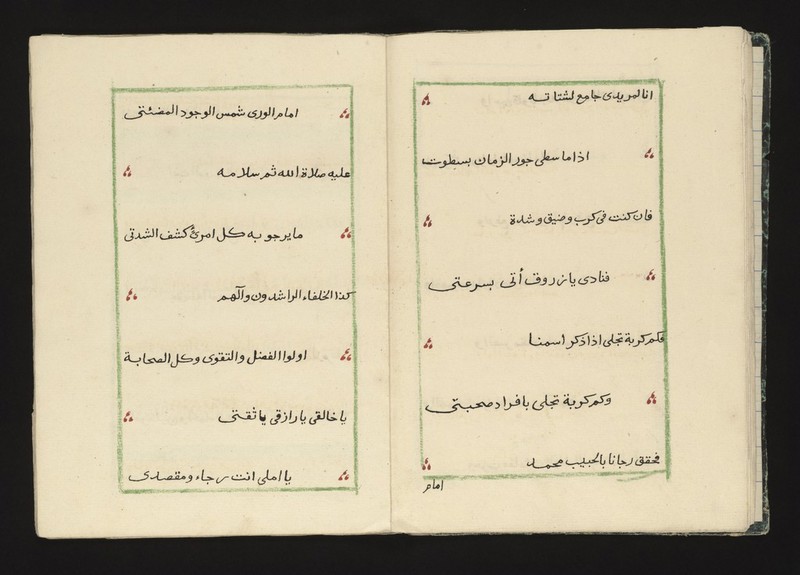 انا لمريدى جامع لشتاته
اذا ما سطى جور الزمان بسطوت
فان كنت فى كرب وضيق وشدة
فنادى يا زروق أتى بسرعتى
فكم كربة تجلى اذا ذكر اسمنا
وكم كربة تجلى بافراد صحبتى
فحقق رجانا بالحبيب محمد
امام
امام الورى شمس الوجود المضئتى
عليه صلاة الله ثم سلامه
ما يرجو به كل امرئ كشف الشدتى
كذا الخلفاء الراشدون وآلهم
اولوا الفضل والتقوى وكل الصحابة
يا خالقى يا رازقى يا ثقتى
يا املى انت رجاء ومقصدى